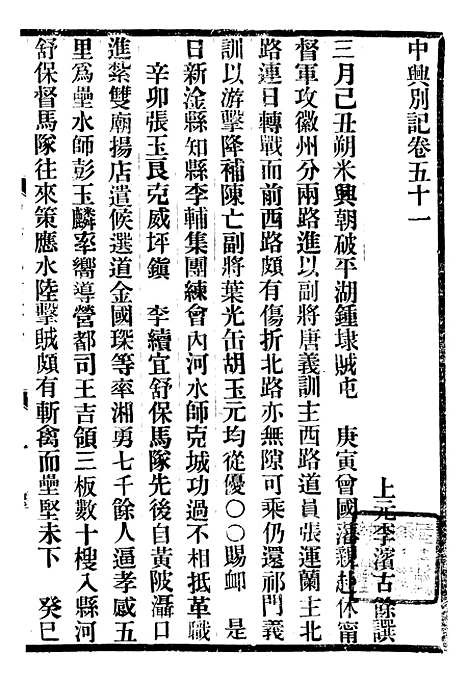 中興別記卷五十一
上元李濱古餘譔
三月己丑朔米興朝破平湖鍾埭賊屯　庚寅曾國藩親赴休甯
督軍攻徽州分兩路進以副將唐義訓主西路道員張運蘭主北
路連日轉戰而前西路頗有傷折北路亦無隙可乘仍還祁門義
訓以游擊降補陳亡副將葉光岳胡玉元均從優〇〇賜卹　是
日新淦縣知縣李輔集團練會內河水師克城功過不相抵革職
辛卯張玉良克威坪鎮　李續宜舒保馬隊先後自黃陂灄口
進紮雙廟揚店遣候選道金國琛等率湘勇七千餘人逼孝感五
里爲壘水師彭玉麟率嚮導營都司王吉領三板數十艘入縣河
舒保督馬隊往來策應水陸擊賊頗有斬禽而壘堅未下　癸巳